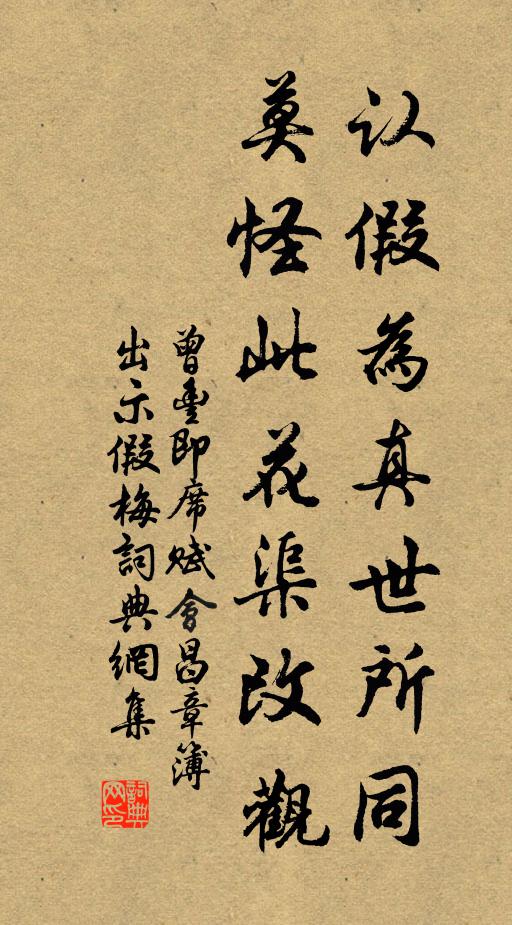 认假為真世所同
莫怪此花渠改觀
曾豊即席赋會昌章簿
出示假梅詞典網集
詞典网印